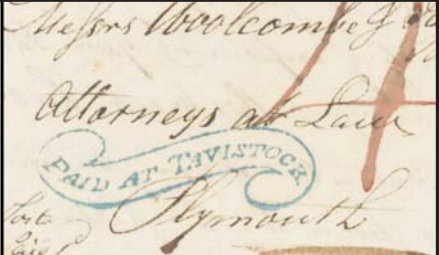 Messrs Woolcombe &
Attorneys at Law
PAID AT TAVISTOCK
Plymouth
Post
Paid